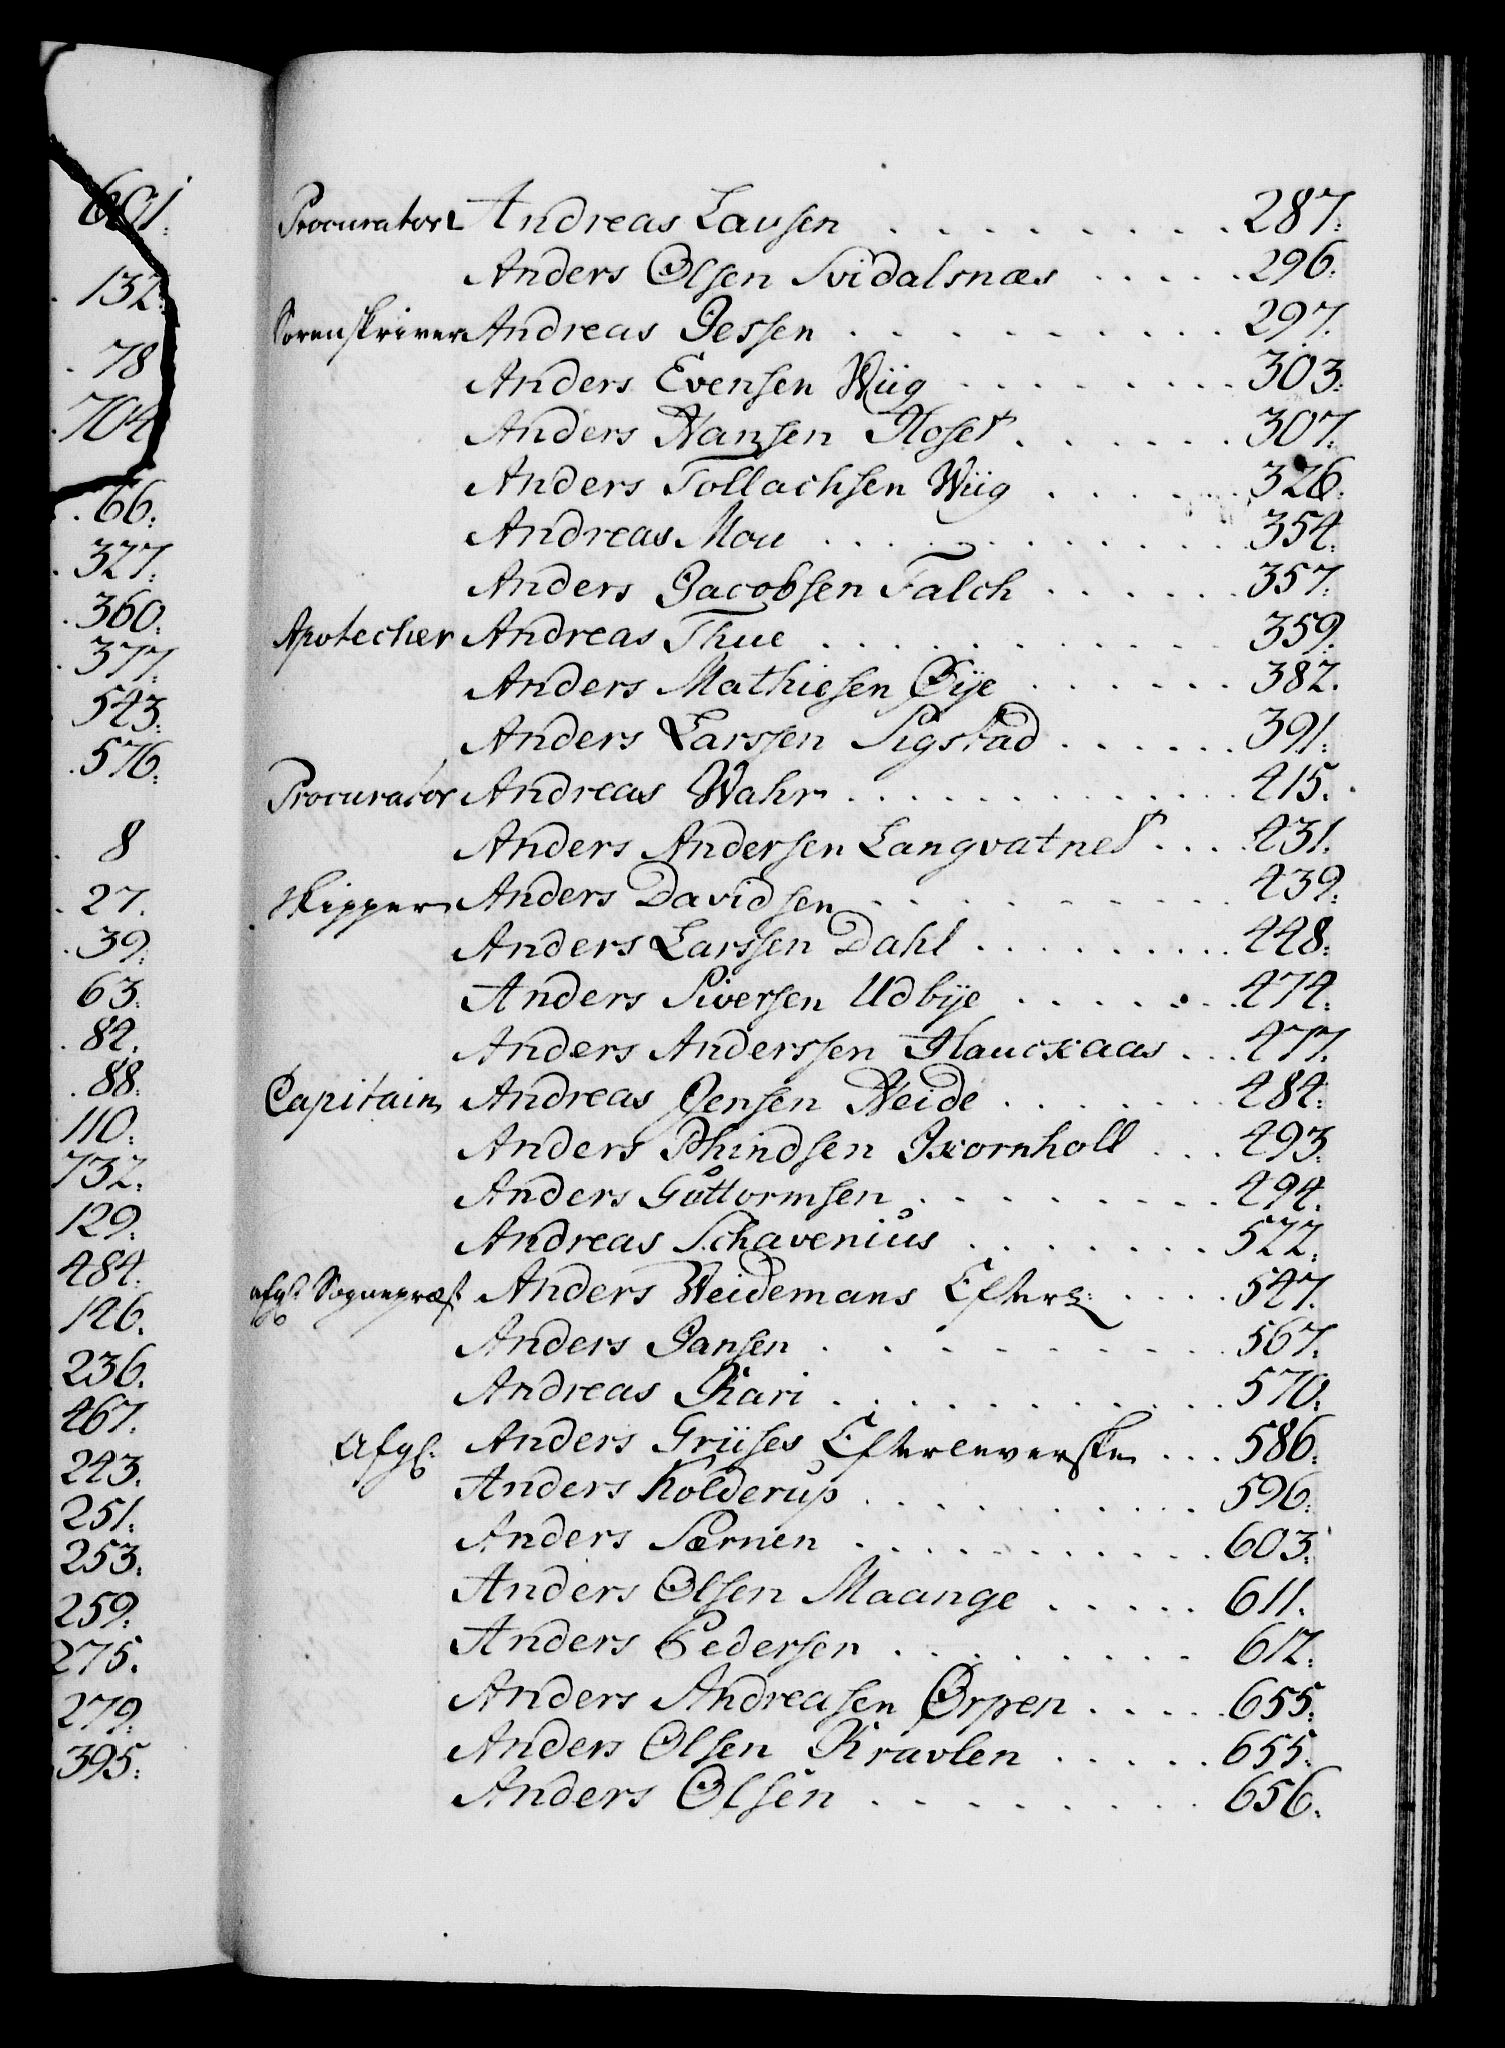 691.
132.
78
704
66.
327.
360.
377.
543.
576.
8
27.
39.
63.
84.
88.
110.
732.
129.
484.
146.
236.
467.
243.
251.
253.
259.
275.
279.
395.
Procurator Andreas Lausen . . . . . . . . 287.
Anders Olsen Svidalsnæs . . . . . 296.
Sorenskriver Andreas Jessen . . . . . . . . . 297.
Anders Evensen Wiig . . . . . . . . 303.
Anders Hansen Moset . . . . . . 307.
Anders Tollachsen Wiig . . . . . 326.
Andreas Mou . . . . . . . . . . . 354.
Anders Jacobsen Falch . . . . . . 357.
Apotecher Andreas Thue . . . . . . . . . . 359.
Anders Mathiesen Øije . . . . . . 382.
Anders Larssen Sigstad . . . . . . 391.
Procurator Andreas Wahr . . . . . . . . . . . 415.
Anders Andersen Langvatnet . . . 431.
Skipper Anders Davidsen . . . . . . . . . 439.
Anders Larssen Dahl . . . . . . . . 448.
Anders Siversen Udbije . . . . . . 474.
Anders Anderssen Hauckaas . . . 477.
Capitain Andreas Jensen Weide . . . . . . . 484.
Anders Phindsen Jxornholl . . . 493.
Anders Guttormsen . . . . . . . . . 494.
Andreas Schavenius . . . . . . . 522.
afg: Sognepræst Anders Weidemans Efterl: . . . . 547.
Anders Jansen . . . . . . . . . 567.
Andreas Kari . . . . . . . . . . . 570.
Afg: Anders Griises Efterleverske . . . 586.
Anders Kolderup . . . . . . . . . . 596.
Anders Særnen . . . . . . . . . . . 603.
Anders Olsen Maange . . . . . 611.
Anders Pedersen . . . . . . . . 612.
Anders Andreasen Ørpen . . . . . 655.
Anders Olsen Kravlen . . . . . 655.
Anders Olsen . . . . . . . . 656.